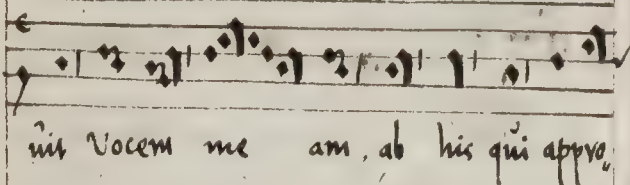 uit vocem me am, ab his qui appro„